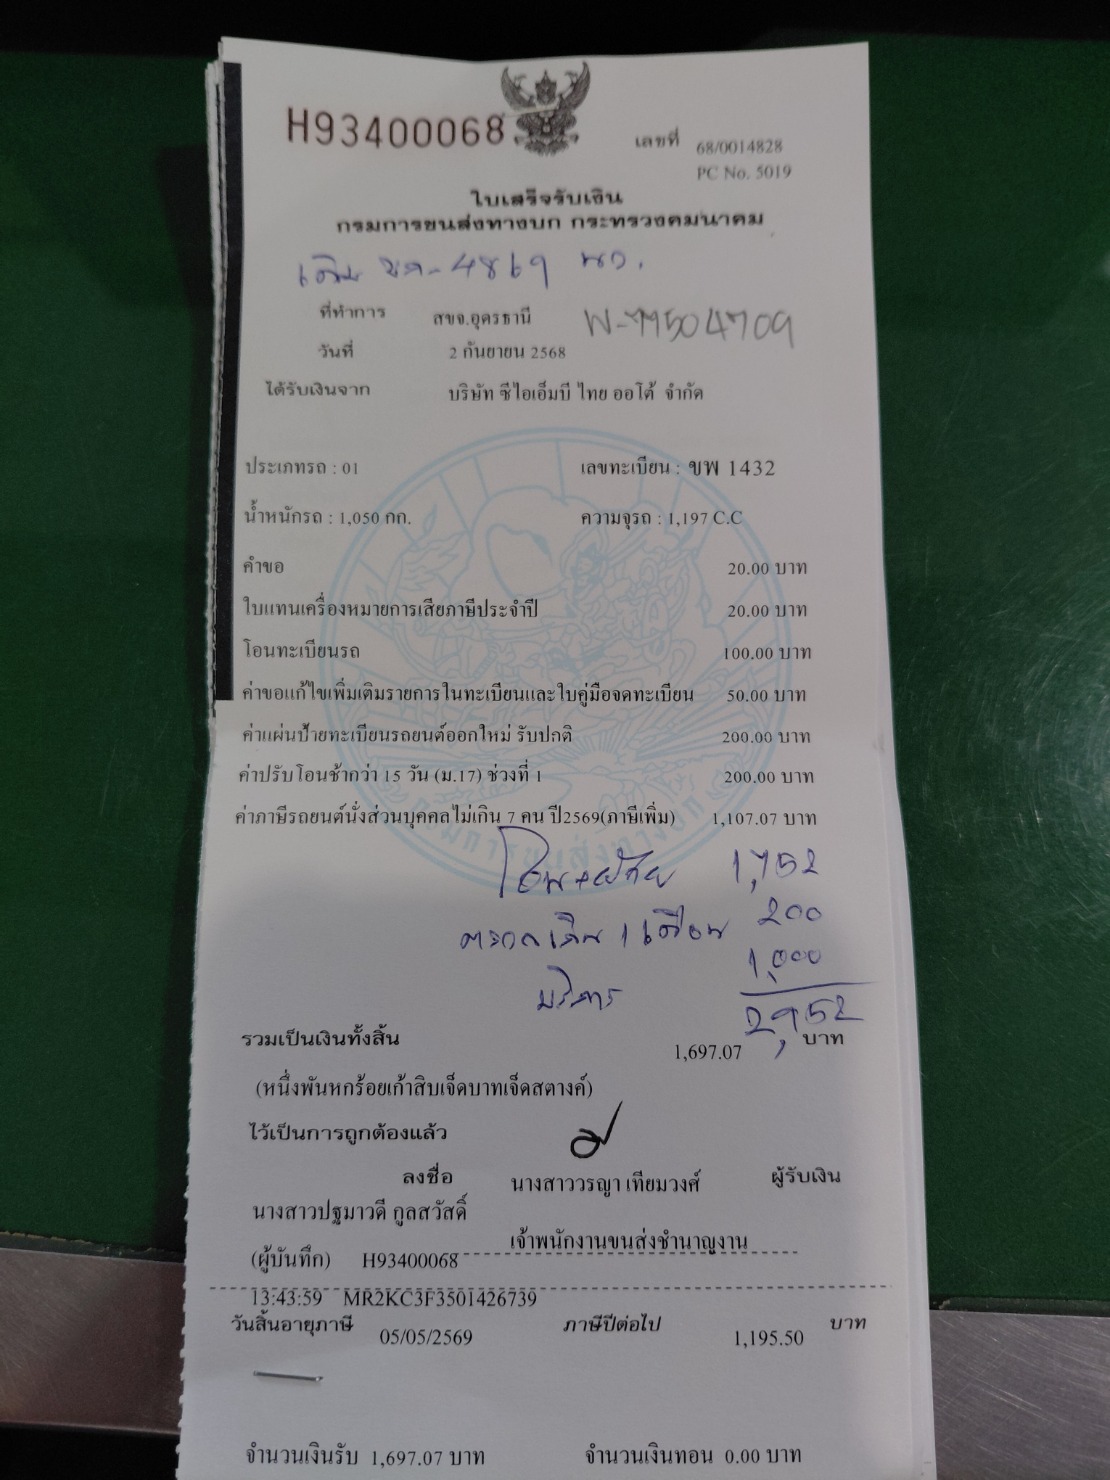 H93400068
เลขที่ 68/0014828
PC No. 5019
ใบเสร็จรับเงิน
กรมการขนส่งทางบก กระทรวงคมนาคม
เดิม ขค-4869 นว.
ที่ทำการ สขจ.อุดรธานี W-77504709
วันที่ 2 กันยายน 2568
ได้รับเงินจาก บริษัท ซีไอเอ็มบี ไทย ออโต้ จำกัด
ประเภทรถ : 01 เลขทะเบียน : ขพ 1432
น้ำหนักรถ : 1,050 กก. ความจุรถ : 1,197 C.C
คำขอ 20.00 บาท
ใบแทนเครื่องหมายการเสียภาษีประจำปี 20.00 บาท
โอนทะเบียนรถ 100.00 บาท
ค่าขอแก้ไขเพิ่มเติมรายการในทะเบียนและใบคู่มือจดทะเบียน 50.00 บาท
ค่าแผ่นป้ายทะเบียนรถยนต์ออกใหม่ รับปกติ 200.00 บาท
ค่าปรับโอนช้ากว่า 15 วัน (ม.17) ช่วงที่ 1 200.00 บาท
ค่าภาษีรถยนต์นั่งส่วนบุคคลไม่เกิน 7 คน ปี2569(ภาษีเพิ่ม) 1,107.07 บาท
โอน+ย้าย 1,752
200
บริการ 1,000
2,952
รวมเป็นเงินทั้งสิ้น 1,697.07 บาท
(หนึ่งพันหกร้อยเก้าสิบเจ็ดบาทเจ็ดสตางค์)
ไว้เป็นการถูกต้องแล้ว
ลงชื่อ นางสาววรญา เทียมวงศ์ ผู้รับเงิน
นางสาวปฐมาวดี กูลสวัสดิ์
เจ้าพนักงานขนส่งชำนาญงาน
(ผู้บันทึก) H93400068
13:43:59 MR2KC3F3501426739
วันสิ้นอายุภาษี 05/05/2569 ภาษีปีต่อไป 1,195.50 บาท
จำนวนเงินรับ 1,697.07 บาท จำนวนเงินทอน 0.00 บาท